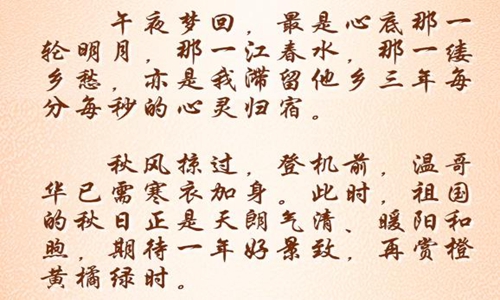 午夜梦回，最是心底那一
轮明月，那一江春水，那一缕
乡愁，亦是我滞留他乡三年每
分每秒的心灵归宿。
秋风掠过，登机前，温哥
华已需寒衣加身。此时，祖国
的秋日正是天朗气清、暖阳和
煦，期待一年好景致，再赏橙
黄橘绿时。